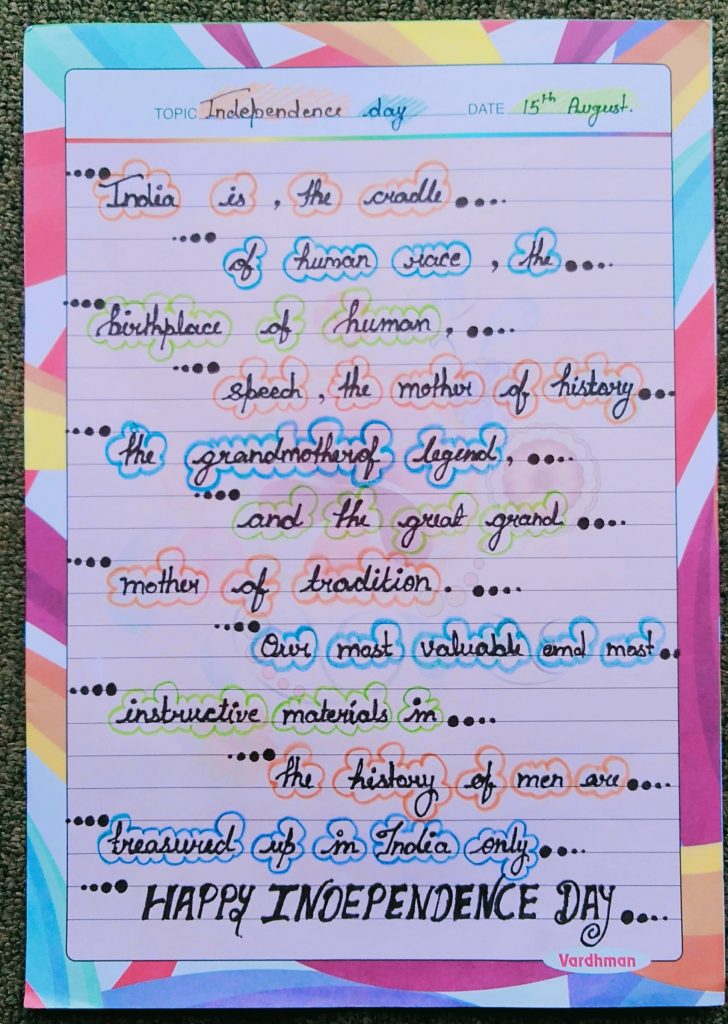 TOPIC Independence day DATE 15th August.
....India is , the cradle....
....of human race , the....
....birthplace of human, ....
....speech , the mother of history....
....the grandmotherof legend, ....
....and the great grand....
....mother of tradition. ....
....Our most valuable and most..
....instructive materials in....
....the history of men are....
....treasured up in India only....
....HAPPY INDEPENDENCE DAY....
Vardhman